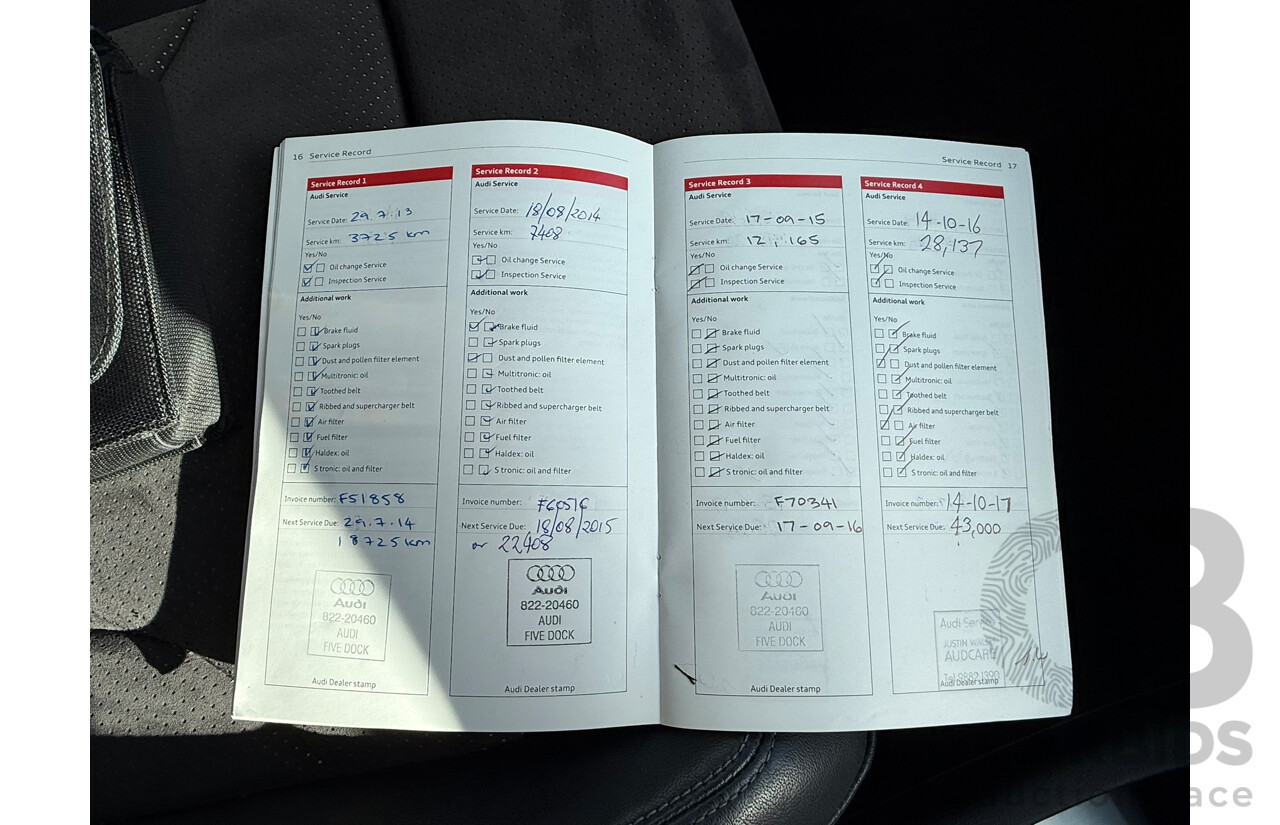 16 Service Record
Service Record 1
Audi Service
Service Date: 29.7.13
Service km: 3725 km
Yes/No
Oil change Service
Inspection Service
Additional work
Yes/No
Brake fluid
Spark plugs
Dust and pollen filter element
Multitronic: oil
Toothed belt
Ribbed and supercharger belt
Air filter
Fuel filter
Haldex: oil
S tronic: oil and filter
Invoice number: F51858
Next Service Due: 29.7.14
18725 km
Audi
822-20460
AUDI
FIVE DOCK
Audi Dealer stamp
Service Record 2
Audi Service
Service Date: 18/08/2014
Service km: 7408
Yes/No
Oil change Service
Inspection Service
Additional work
Yes/No
Brake fluid
Spark plugs
Dust and pollen filter element
Multitronic: oil
Toothed belt
Ribbed and supercharger belt
Air filter
Fuel filter
Haldex: oil
S tronic: oil and filter
Invoice number:
Next Service Due: 18/08/2015
or 22408
Audi
822-20460
AUDI
FIVE DOCK
Audi Dealer stamp
Service Record 17
Service Record 3
Audi Service
Service Date: 17-09-15
Service km: 12,165
Yes/No
Oil change Service
Inspection Service
Additional work
Yes/No
Brake fluid
Spark plugs
Dust and pollen filter element
Multitronic: oil
Toothed belt
Ribbed and supercharger belt
Air filter
Fuel filter
Haldex: oil
S tronic: oil and filter
Invoice number: F70341
Next Service Due: 17-09-16
Audi
822-20460
AUDI
FIVE DOCK
Audi Dealer stamp
Service Record 4
Audi Service
Service Date: 14-10-16
Service km: 28,137
Yes/No
Oil change Service
Inspection Service
Additional work
Yes/No
Brake fluid
Spark plugs
Dust and pollen filter element
Multitronic: oil
Toothed belt
Ribbed and supercharger belt
Air filter
Fuel filter
Haldex: oil
S tronic: oil and filter
Invoice number: 14-10-17
Next Service Due: 43,000
Audi
JUSTIN
AUDCARE
Tel 9882 1390
Audi Dealer stamp